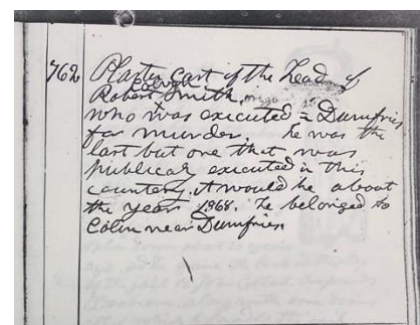 762 Plaster Cast of the Head of
Robert Smith,
who was executed in Dumfries
for murder. he was the
last but one that was
publicaly executed in this
country. it would be about
the year 1868. he belonged to
Colin near Dumfries